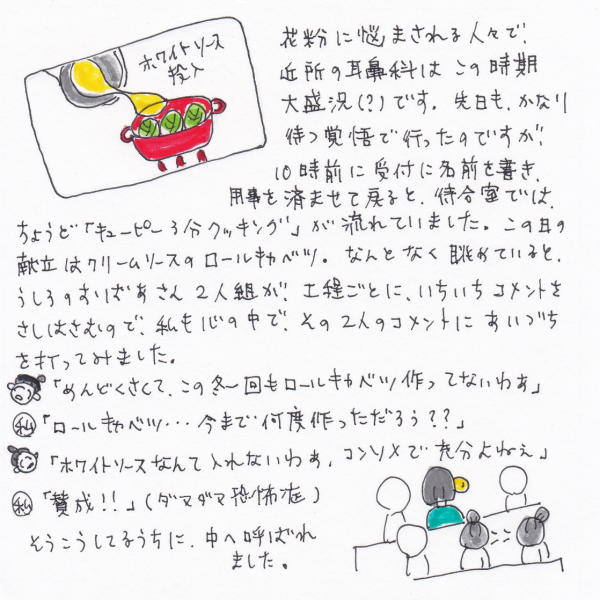 ホワイトソース
投入
花粉に悩まされる人々で、
近所の耳鼻科は この時期
大盛況(?)です。先日も、かなり
待つ覚悟で行ったのですが、
10時前に受付に名前を書き、
用事を済ませて戻ると、待合室では、
ちょうど「キューピー3分クッキング」が流れていました。この日の
献立はクリームソースのロールキャベツ。なんとなく眺めていると、
うしろのおばあさん2人組が、工程ごとに、いちいちコメントを
さしはさむので、私も心の中で、その2人のコメントにあいづち
を打ってみました。
「めんどくさくて、この冬一回もロールキャベツ作ってないわぁ」
私「ロールキャベツ・・・今まで何度作っただろう??」
「ホワイトソースなんて入れないわぁ、コンソメで充分よねぇ」
私「賛成!!」(ダマダマ恐怖症)
そうこうしてるうちに、中へ呼ばれ
ました。